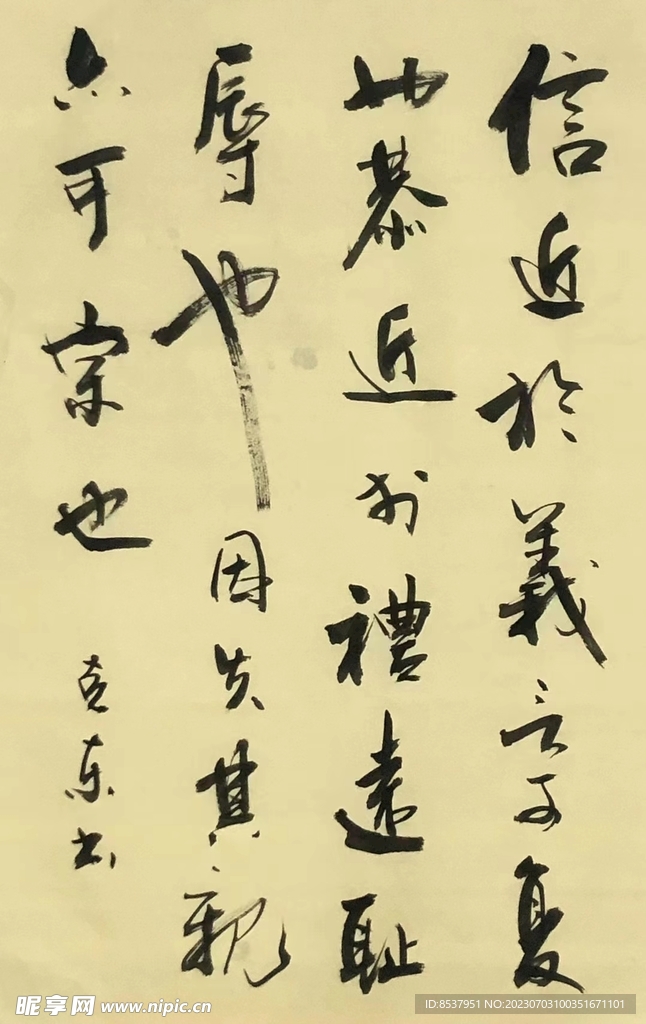 信近於義言可复
也恭近於禮遠耻
辱也因失其親
亦可宗也
克东书
昵享网 www.nipic.cn
ID:8537951 NO:20230703100351671101